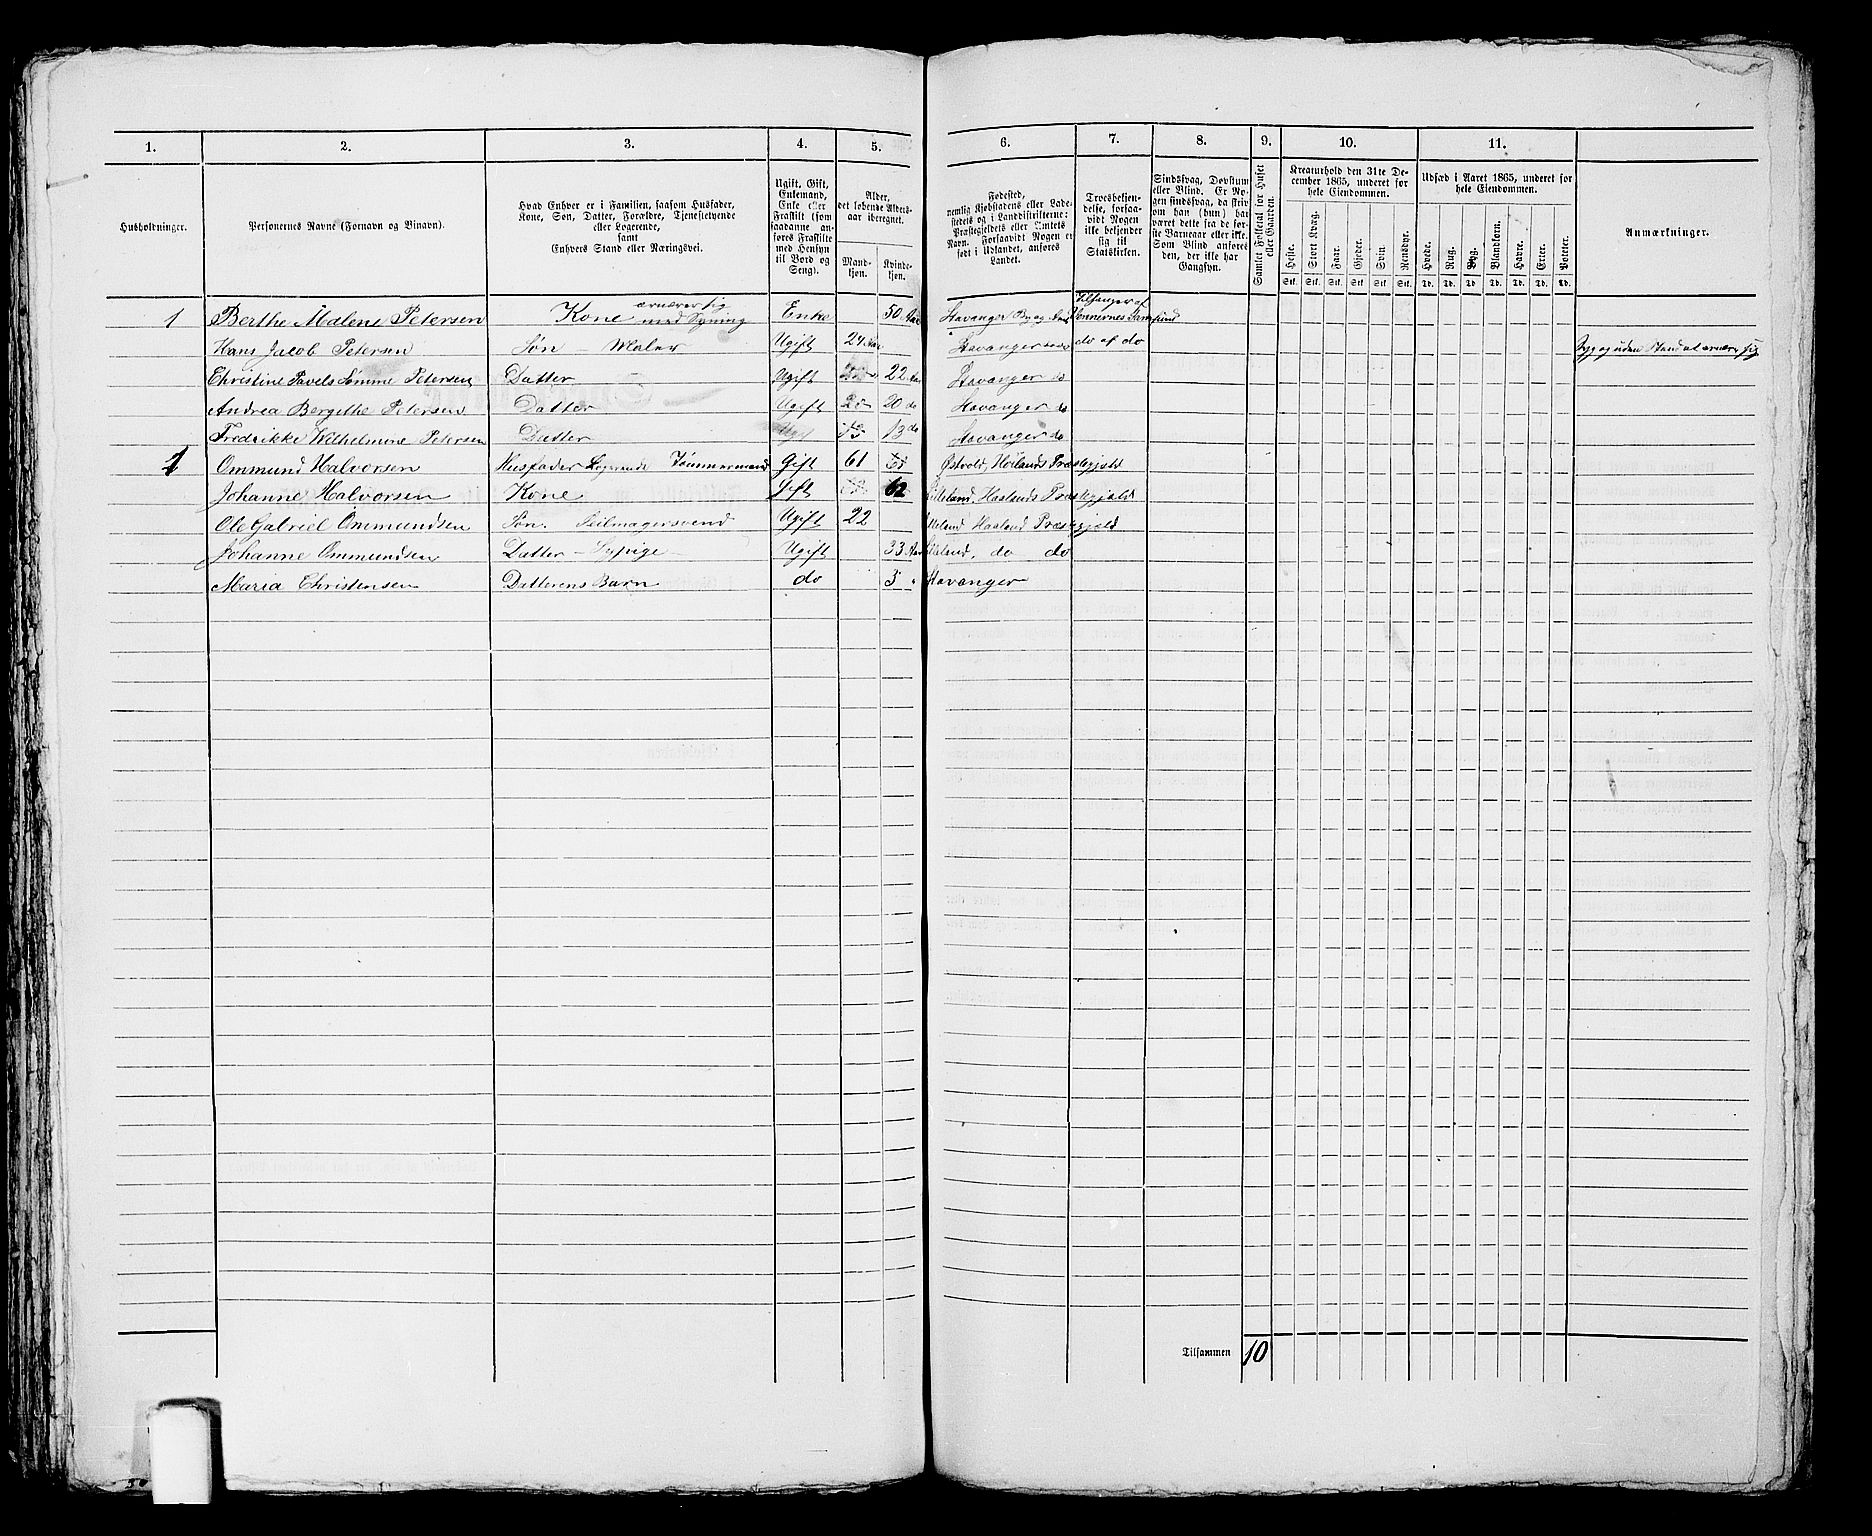 1. 2. 3. 4. 5. 6. 7. 8. 9. 10. 11.
Husholdninger.
Personernes Navne (Fornavn og Binavn).
Hvad Enhver er i Familien, saasom Husfader,
Kone, Søn, Datter, Forældre, Tjenestetyende
eller Logerende,
samt
Enhvers Stand eller Næringsvei.
Ugift, Gift,
Enkemand,
Enke eller
Fraskilt (som
saadanne an-
føres Fraskilte
med Hensyn
til Bord og
Seng).
Alder,
det løbende Alders-
aar iberegnet.
Mand-
kjøn.
Kvinde-
kjøn.
Fødested,
nemlig Kjøbstadens eller Lade-
stedets og i Landdistrikterne:
Præstegjeldets eller Amtets
Navn. Forsaavidt Nogen er
født i Udlandet, anføres
Landet.
Troesbekjen-
delse, forsaa-
vidt Nogen
ikke bekjender
sig til
Statskirken.
Sindssvag, Døvstum
eller Blind. Er No-
gen sindssvag, da skriv
om han (hun) har
været dette fra de før-
ste Barneaar eller ikke.
Som Blind anføres
den, der ikke har
Gangsyn.
Samlet Folketal for Huset
eller Gaarden.
Kreaturhold den 31te De-
cember 1865, underet for
hele Eiendommen.
Heste. Stort Kvæg. Faar. Gjeder. Svin. Rensdyr.
Stk. Stk. Stk. Stk. Stk. Stk.
Udsæd i Aaret 1865, underet for
hele Eiendommen.
Hvede. Rug. Byg. Blandkorn. Havre. Erter. Poteter.
Td. Td. Td. Td. Td. Td. Td.
Anmærkninger.
1 Berthe Malene Petersen Kone ernærer sig med Syning Enke 50 Aar Stavanger By og Amt Tilhænger af Vennernes Samfund
Hans Jacob Petersen Søn – Maler Ugift 24 Aar Stavanger do af do Syg og uden Stand at ernære sig
Christine Pavels Sømme Petersen Datter Ugift 22 Aar Stavanger do
Andrea Bergithe Petersen Datter Ugift 20 do Stavanger do
Fredrikke Wilhelmine Petersen Datter Ugift 13 do Stavanger do
1 Ommund Halvorsen Husfader Logerende Tømmermand Gift 61 Høilands Præstegjeld
Johanne Halvorsen Kone Gift 62 Haalands Præstegjeld
Ole Gabriel Ommundsen Søn. Seilmagersvend Ugift 22 Haaland Præstegjeld
Johanne Ommundsen Datter – Sypige Ugift 33 Aar do do
Maria Christensen Datterens Barn do 3 Stavanger
Tilsammen 10